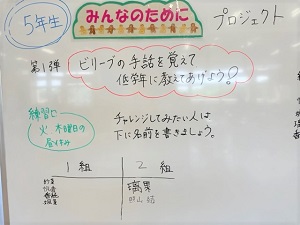 5年生
みんなのために
プロジェクト
第1弾
ビリーブの手話を覚えて
低学年に教えてあげよう!
練習は
火 木曜日の
昼休み
チャレンジしてみたい人は
下に名前を書きましょう。
1組
2組